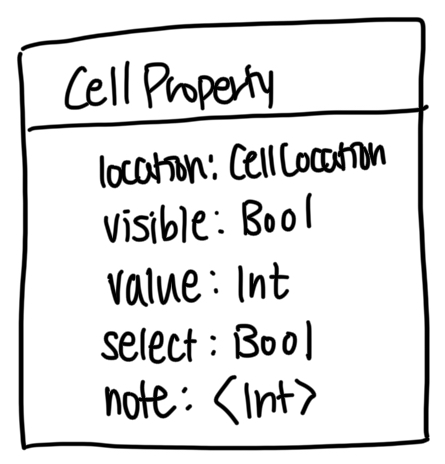 CellProperty
location: CellLocation
visible: Bool
value: Int
select: Bool
note: <Int>